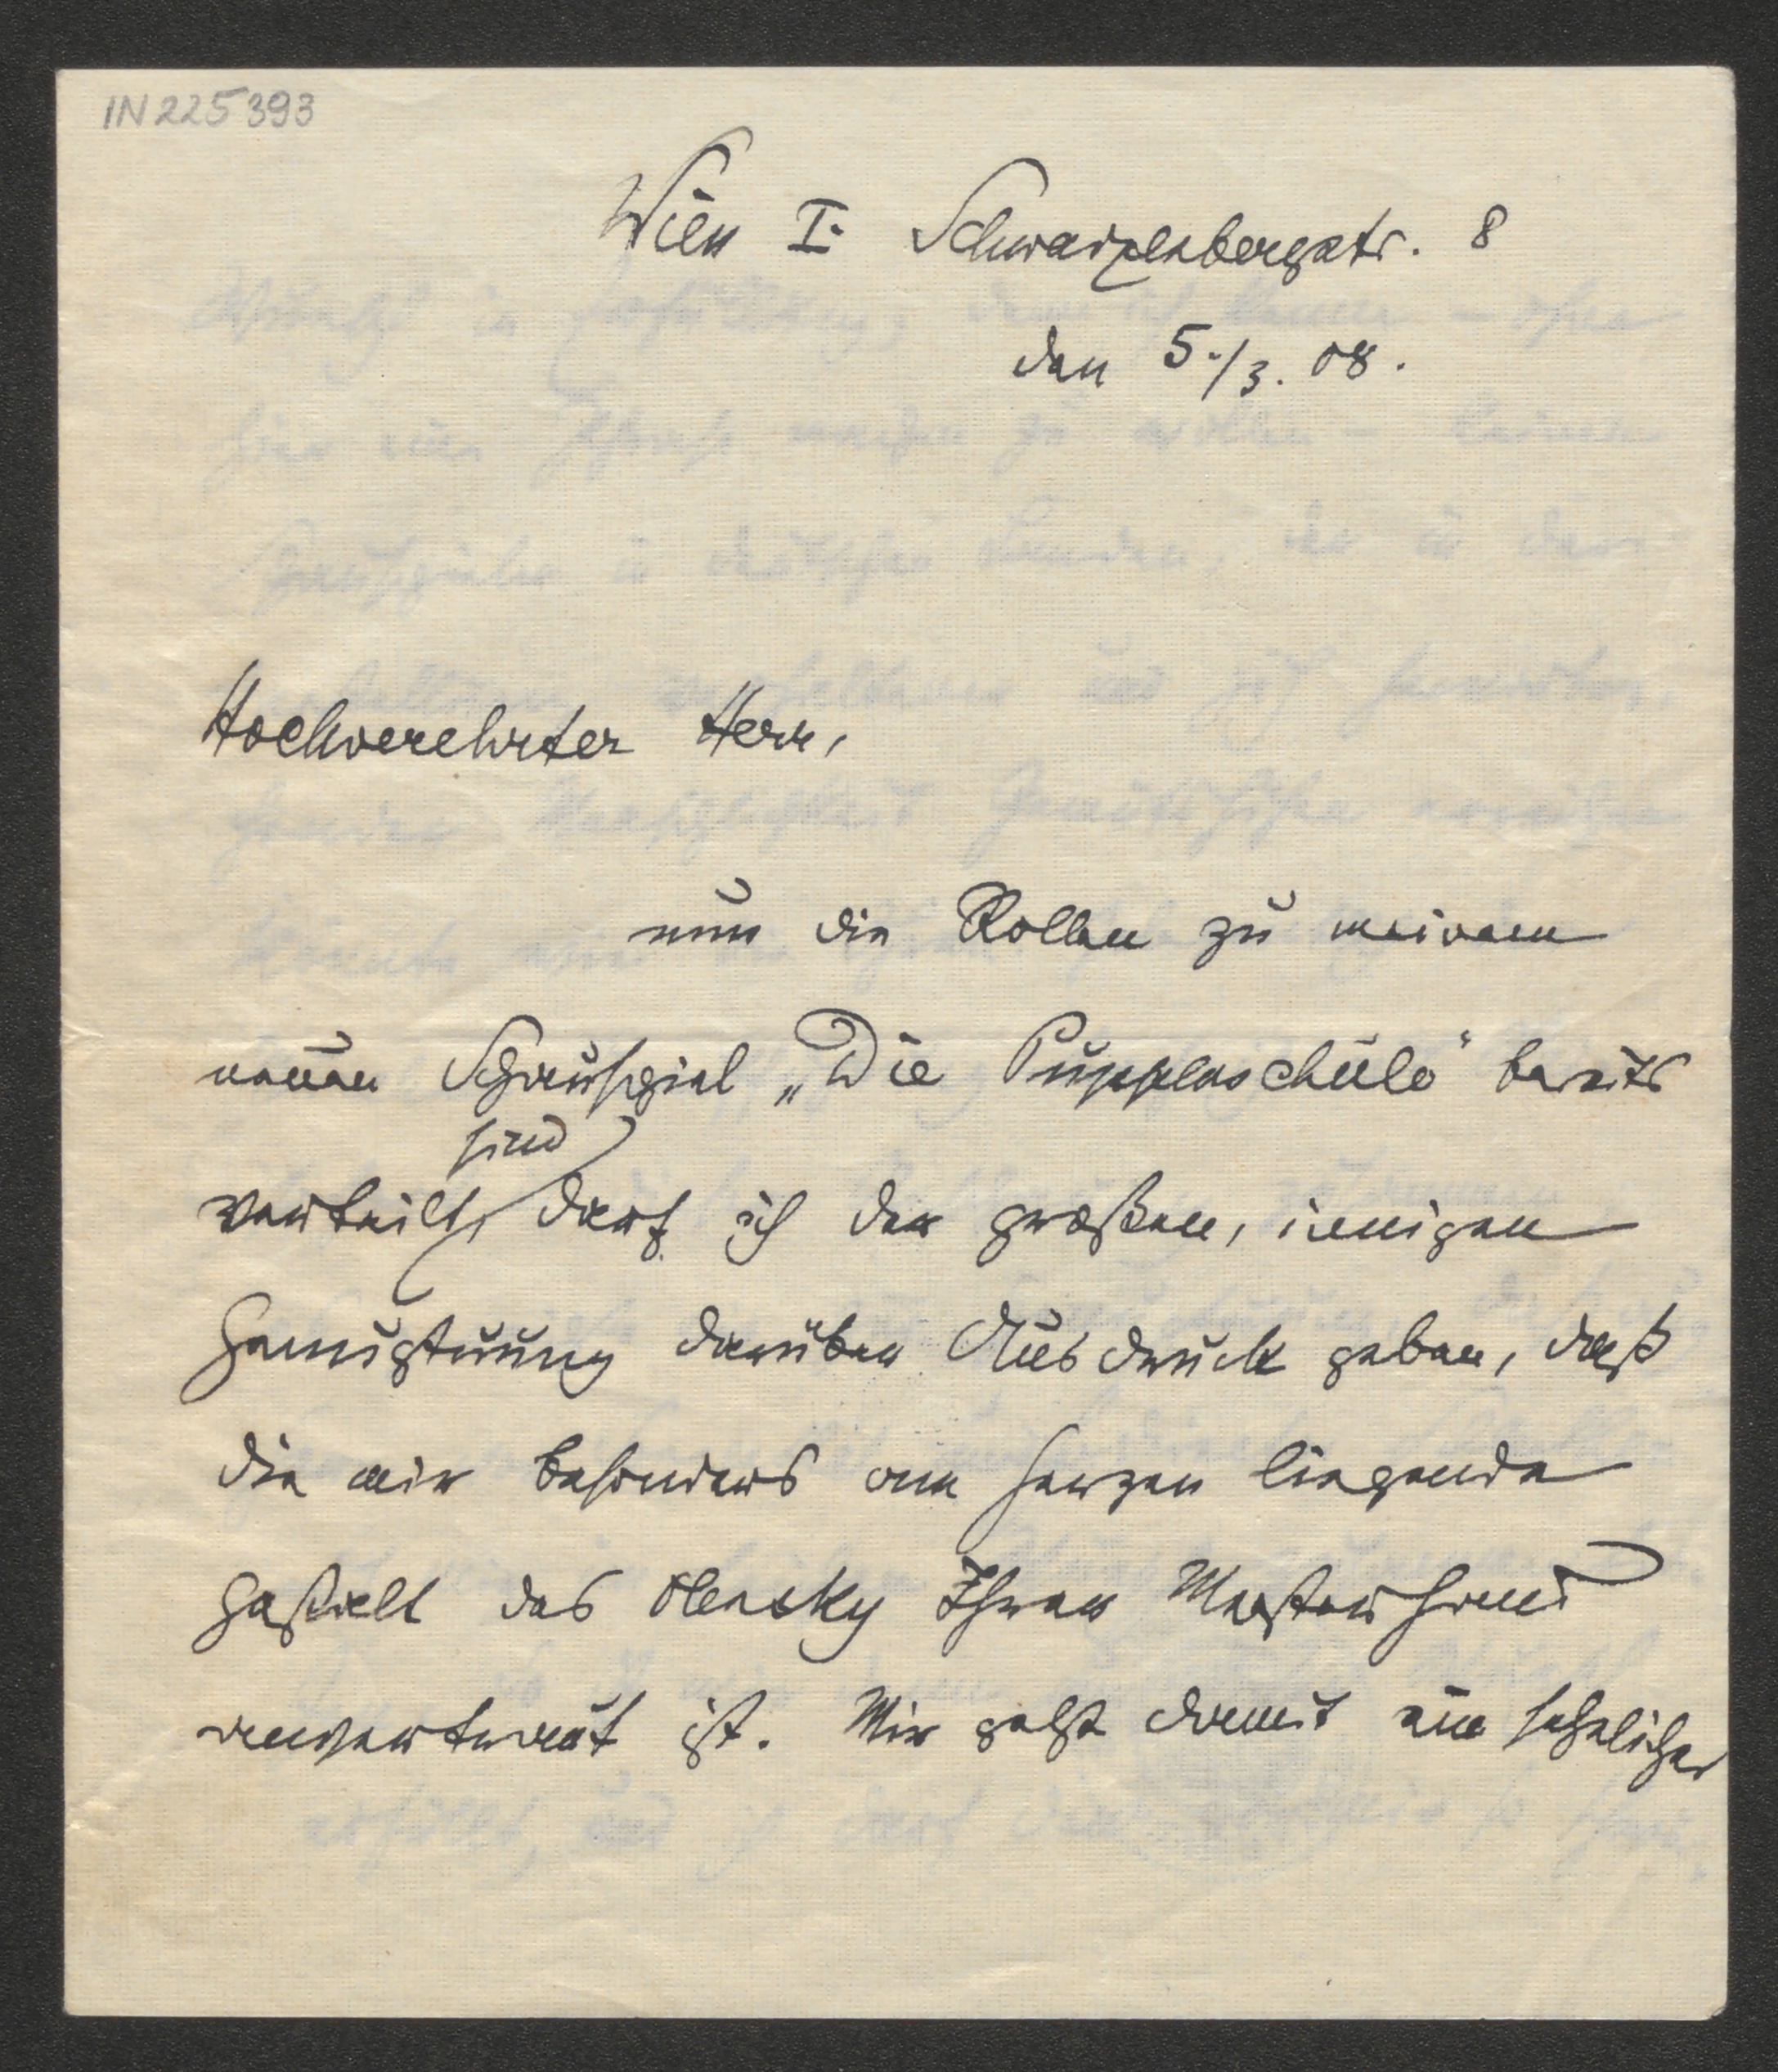 IN 225393
Wien I. Schwarzenbergstr. 8
den 5./3. 08.
Hochverehrter Herr,
nun die Rollen zu meinem
neuen Schauspiel „Die Puppenschule“ bereits
sind
verteilt, darf ich der großen, innigen
Genugtuung darüber Ausdruck geben, daß
die mir besonders am Herzen liegende
Gestalt des Olensky Ihrer Meisterhand
anvertraut ist. Mir geht damit ein sehnlicher